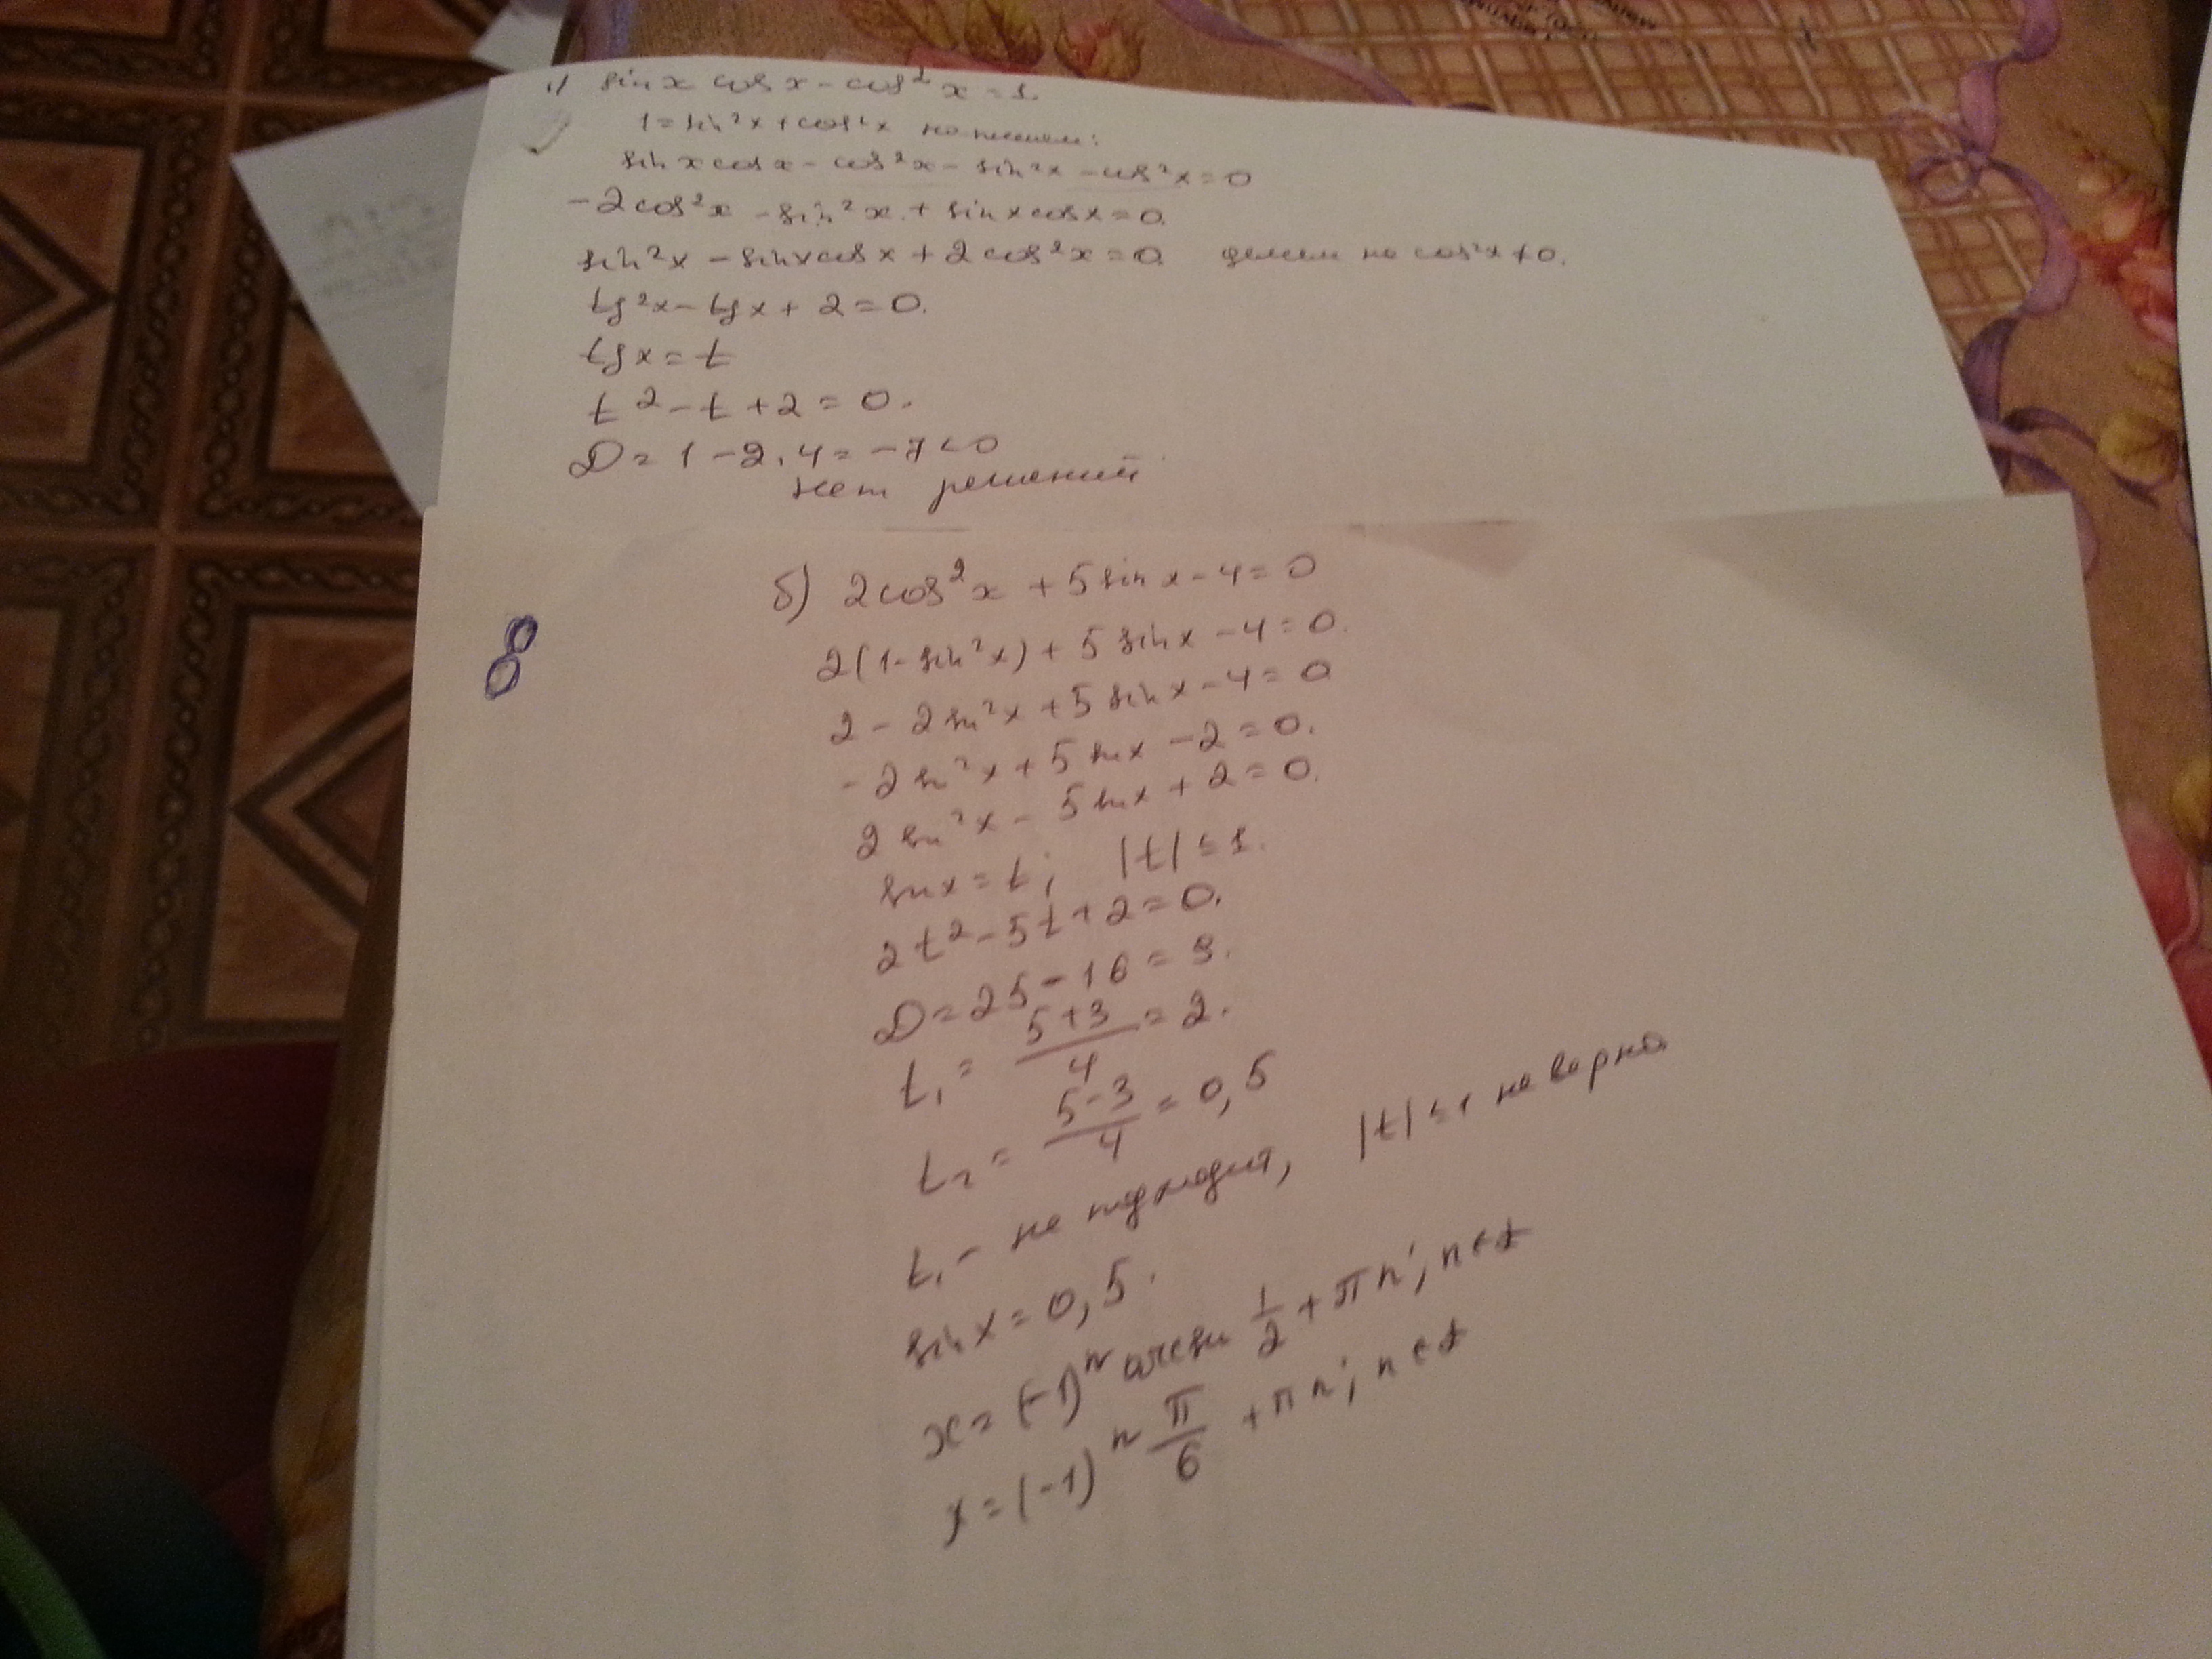 1) sin x cos x - cos²x = 1.
1 = sin²x + cos²x
sin x cos x - cos²x - sin²x - cos²x = 0
-2cos²x - sin²x + sin x cos x = 0.
sin²x - sin x cos x + 2cos²x = 0 делим на cos²x ≠ 0.
tg²x - tg x + 2 = 0.
tg x = t
t² - t + 2 = 0.
D = 1 - 2·4 = -7 < 0
нет решений
8
б) 2cos²x + 5 sin x - 4 = 0
2(1 - sin²x) + 5 sin x - 4 = 0.
2 - 2 sin²x + 5 sin x - 4 = 0
-2 sin²x + 5 sin x - 2 = 0.
2 sin²x - 5 sin x + 2 = 0.
sin x = t; |t| ≤ 1.
2t² - 5t + 2 = 0.
D = 25 - 16 = 9.
t₁ = (5+3)/4 = 2.
t₂ = (5-3)/4 = 0,5
t₁ - не подходит, |t| ≤ 1 не верно
sin x = 0,5.
x = (-1)ⁿ arcsin 1/2 + πn; n ∈ Z
x = (-1)ⁿ π/6 + πn; n ∈ Z